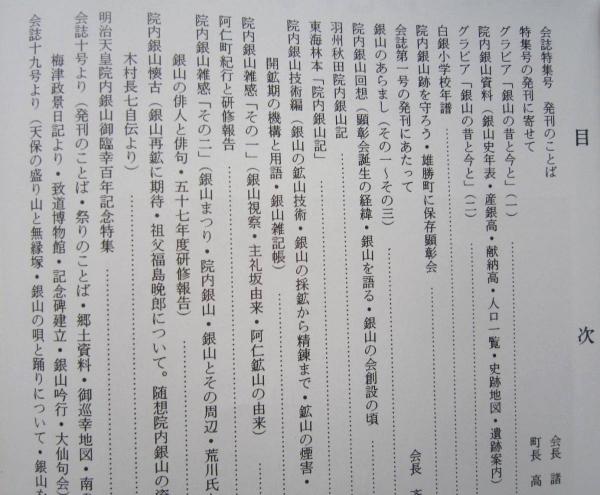 目 次
会誌特集号 発刊のことば 会長 諸
特集号の発刊に寄せて 町長 高
グラビア「銀山の昔と今と」(一)
院内銀山資料(銀山史年表・産銀高・献納高・人口一覧・史跡地図・遺跡案内)
グラビア「銀山の昔と今と」(二)
白銀小学校年譜
院内銀山跡を守ろう・雄勝町に保存顕彰会
会誌第一号の発刊にあたって 会長
銀山のあらまし(その一〜その三)
院内銀山回想(顕彰会誕生の経緯・銀山を語る・銀山の会創設の頃
羽州秋田院内銀山記
東海林本「院内銀山記」
院内銀山技術編(銀山の鉱山技術・銀山の採鉱から精錬まで・鉱山の煙害・
開鉱期の機構と用語・銀山雑記帳)
院内銀山雑感「その一」(銀山視察・主礼坂由来・阿仁鉱山の由来)
阿仁町紀行と研修報告
院内銀山雑感「その二」(銀山まつり・院内銀山・銀山とその周辺・荒川氏
銀山の俳人と俳句・五十七年度研修報告)
院内銀山懐古(銀山再鉱に期待・祖父福島晩郎について。随想院内銀山の
木村長七自伝より)
明治天皇院内銀山御臨幸百年記念特集
会誌十号より(発刊のことば・祭りのことば・郷土資料・御巡幸地図・南
梅津政景日記より・致道博物館・記念碑建立・銀山吟行・大仙句会)
会誌十九号より(天保の盛り山と無縁塚・銀山の唄と踊りについて・銀山